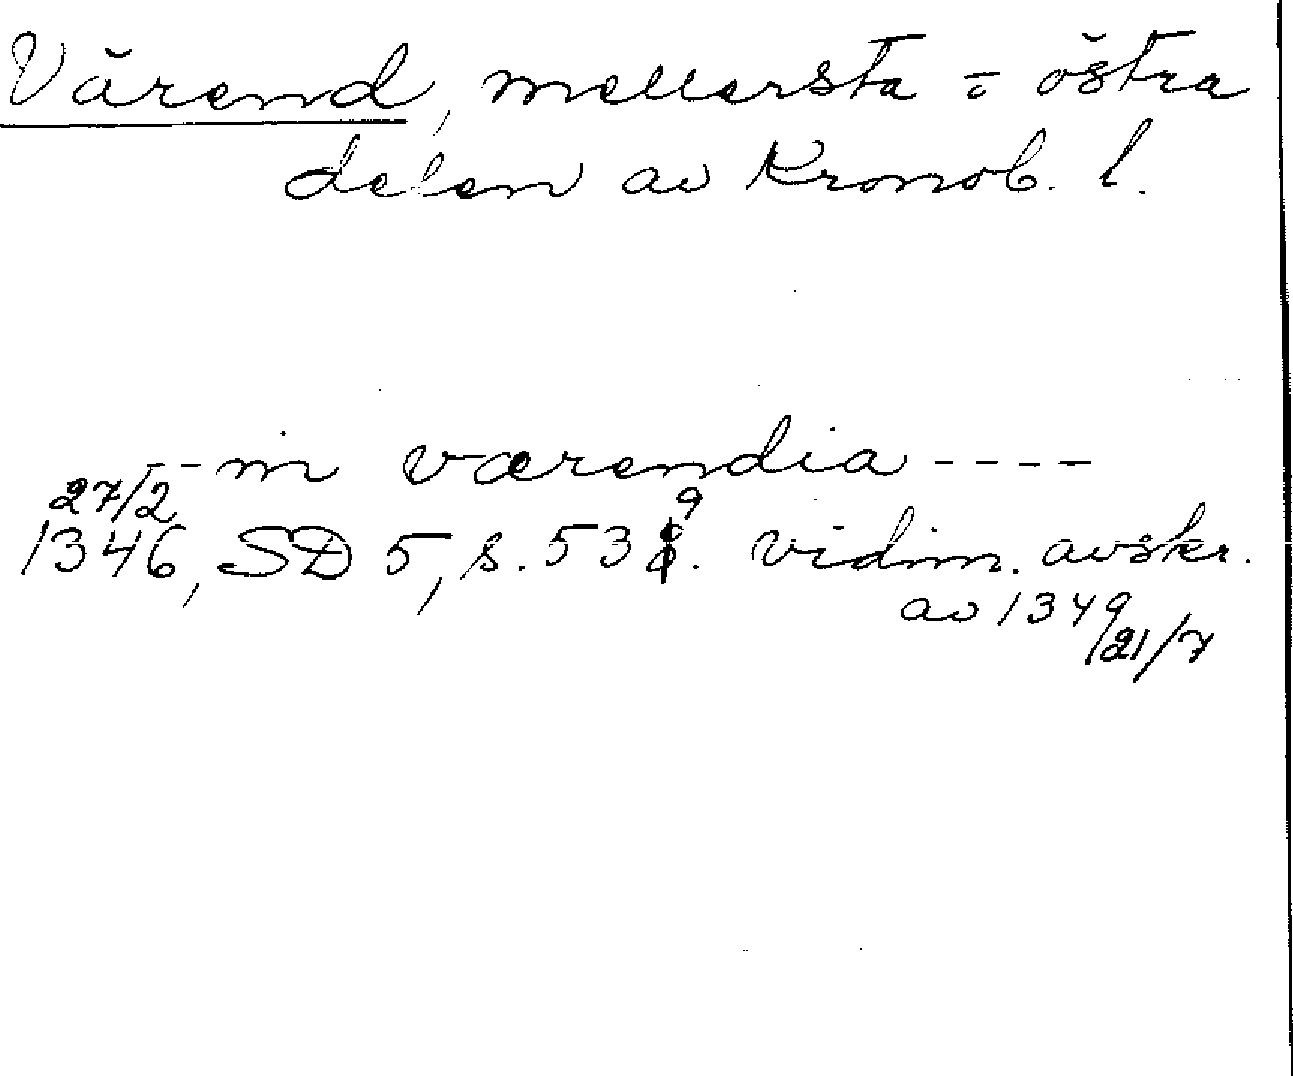 Värend, mellersta = östra
delen av Kronob. l.
--in værendia----
27/2
1346, SD 5, s. 539. vidim. avskr.
av 1349
21/7